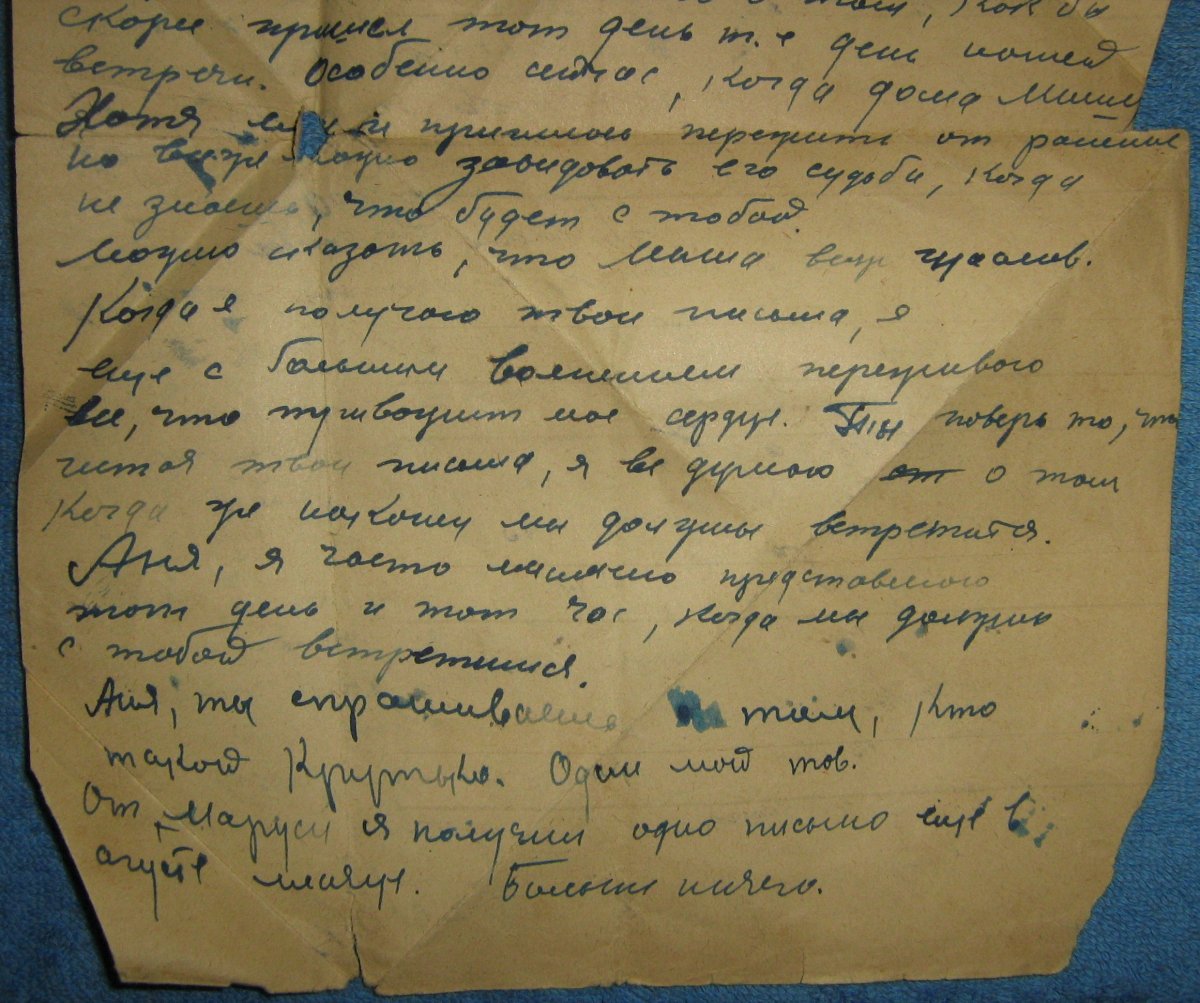 о том, как бы
скорее пришел тот день т.е день нашей
встречи. Особенно сейчас, когда дома Миша
Хотя и пришлось пережить от
но все же можно завидовать его судьбе, когда
не знаешь, что будет с тобой.
Можно сказать, что Миша все счаслив.
Когда я получаю твои письма, я
еще с большим волнением переживаю
все, что тревожит мое сердце. Ты поверь то, что
читая твои письма, я все думаю о том
когда же наконец мы должны встретится.
Аня, я часто мысленно представляю
тот день и тот час, когда мы должны
с тобой встретится.
Аня, ты спрашиваешь о том, кто
такой Крутько. Один мой тов.
От Маруси я получил одно письмо еще в
агусте месяце. Больше ничего.